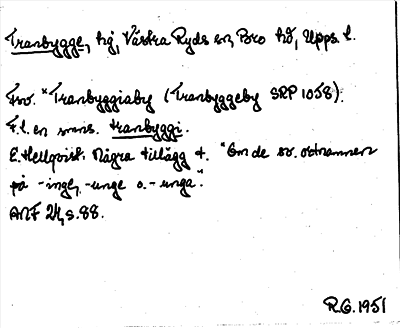 Tranbygge, hg, Västra Ryds sn, Bro hd, Upps. l.
Fsv. *Tranbyggiaby (Tranbyggeby SRP 1058).
F.l. en svens. tranbyggi.
E. Hellqvist: Några tillägg t. "Om de sv. ortnamnen
på -inge, -unge o. -unga".
ANF 24, s. 88.
R.G. 1951